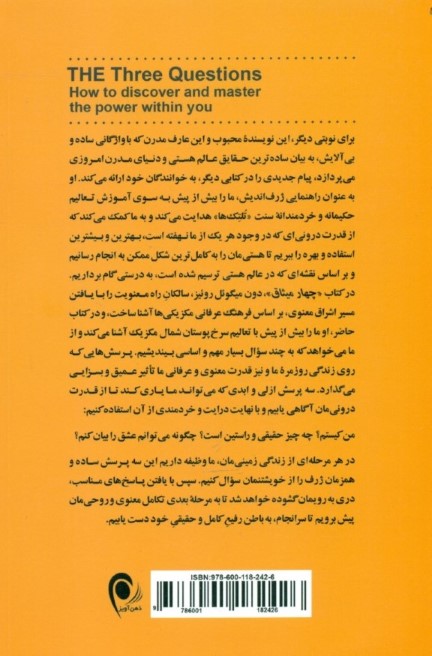 THE Three Questions
How to discover and master
the power within you
برای نوبتی دیگر، این نویسندهٔ محبوب و این عارف مدرن که با واژگانی ساده و
بی‌آلایش، به بیان ساده‌ترین حقایق عالم هستی و دنیای مدرن امروزی
می‌پردازد، پیام جدیدی را در کتابی دیگر، به خوانندگان خود ارائه می‌کند. او
به عنوان راهنمایی ژرف‌اندیش، ما را بیش از پیش به سوی آموزش تعالیم
حکیمانه و خردمندانهٔ سنت «تُلتِک‌ها» هدایت می‌کند و به ما کمک می‌کند که
از قدرت درونی‌ای که در وجود هر یک از ما نهفته است، بهترین و بیشترین
استفاده و بهره را ببریم تا هستی‌مان را به کامل‌ترین شکل ممکن به انجام رسانیم
و بر اساس نقشه‌ای که در عالم هستی ترسیم شده است، به درستی گام برداریم.
در کتاب «چهار میثاق»، دون میگوئل روئیز، سالکانِ راه معنویت را با یافتن
مسیر اشراق معنوی، بر اساس فرهنگ عرفانی مکزیکی‌ها آشنا ساخت، و در کتاب
حاضر، او ما را بیش از پیش با تعالیم سرخ‌پوستان شمال مکزیک آشنا می‌کند و از
ما می‌خواهد که به چند سؤال بسیار مهم و اساسی بیندیشیم. پرسش‌هایی که
روی زندگی روزمرهٔ ما و نیز قدرت معنوی و عرفانی ما تأثیر عمیق و بسزایی
می‌گذارد. سه پرسش ازلی و ابدی که می‌تواند ما یاری کند تا از قدرت
درونی‌مان آگاهی یابیم و با نهایت درایت و خردمندی از آن استفاده کنیم:
من کیستم؟ چه چیز حقیقی و راستین است؟ چگونه می‌توانم عشق را بیان کنم؟
در هر مرحله‌ای از زندگی زمینی‌مان، ما وظیفه داریم این سه پرسش ساده و
همزمان ژرف را از خویشتنمان سؤال کنیم. سپس با یافتن پاسخ‌های مناسب،
دری به رویمان گشوده خواهد شد تا به مرحلهٔ بعدی تکامل معنوی و روحی‌مان
پیش برویم تا سرانجام، به باطن رفیعِ کامل و حقیقیِ خود دست یابیم.
ISBN: 978-600-118-242-6
9 786001 182426
ذهن‌آویز